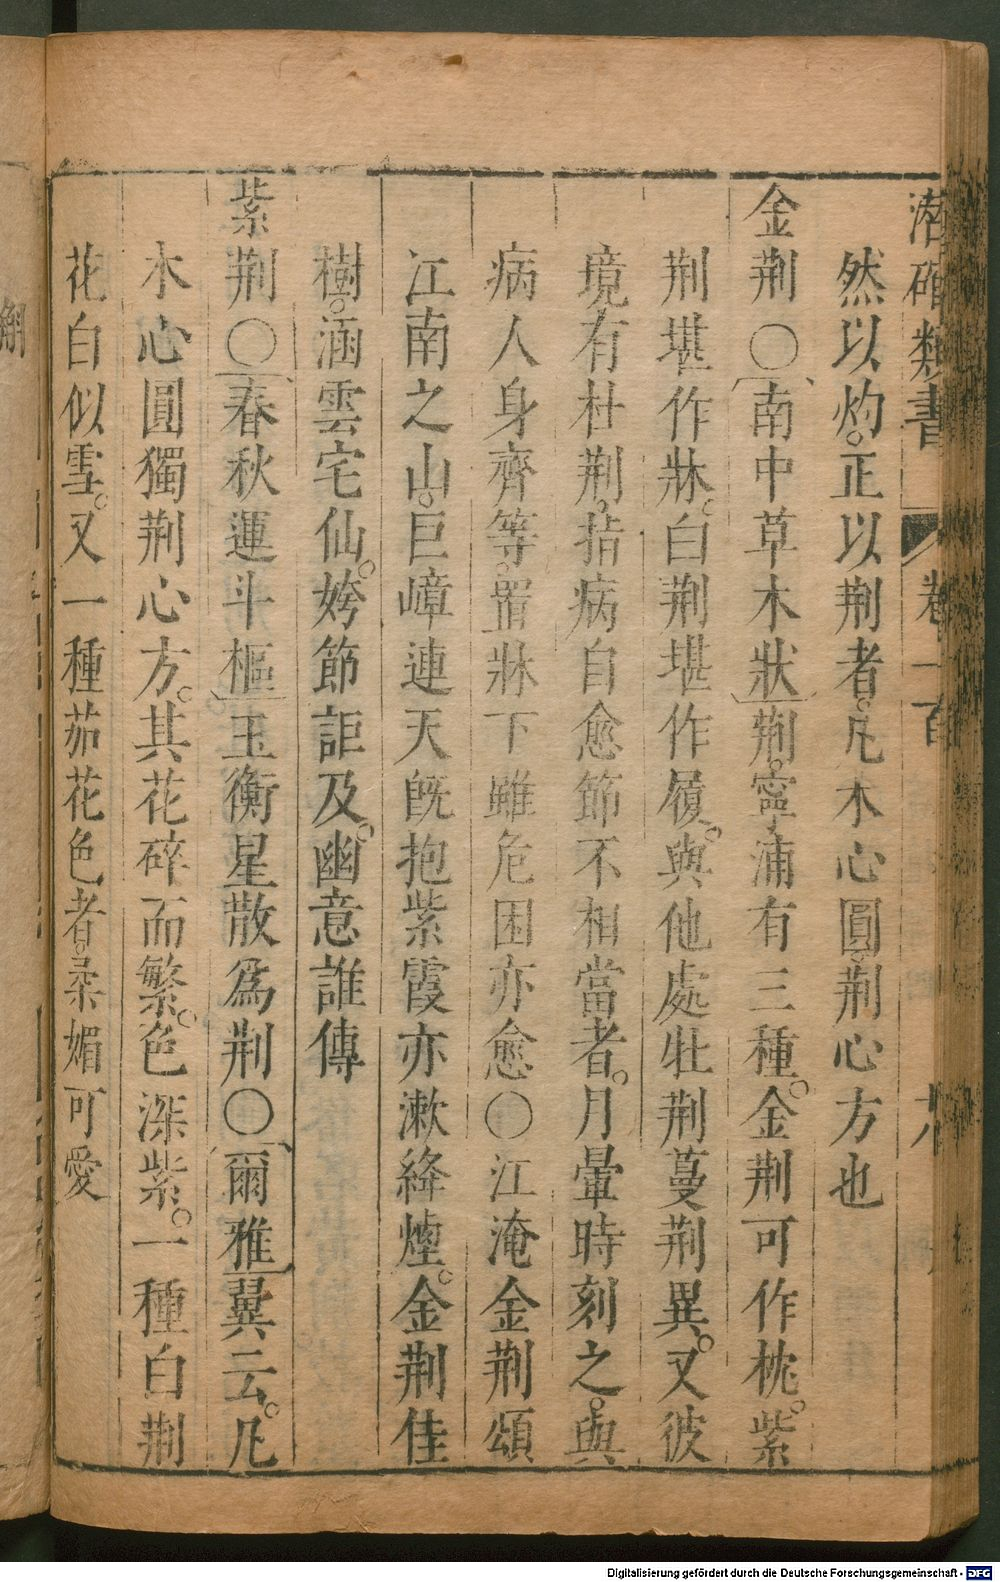 潛確類書 卷一百
然以灼。正以荆者。凡木心圓。荆心方也
金荆〇南中草木狀荆。寧浦有三種。金荆可作枕。紫
荆堪作牀。白荆堪作履。與他處牡荆蔓荆異。又彼
境有杜荆。指病自愈節不相當者。月暈時刻之。與
病人身齊等。置牀下雖危困亦愈〇江淹金荆頌
江南之山。巨嶂連天旣抱紫霞亦漱絳煙。金荆佳
樹。涵雲宅仙。姱節詎及。幽意誰傳
紫荆〇春秋運斗樞玉衡星散爲荆〇爾雅翼云。凡
木心圓獨荆心方。其花碎而繁。色深紫。一種白荆
花白似雪。又一種茄花色者。柔媚可愛
Digitalisierung gefördert durch die Deutsche Forschungsgemeinschaft - DFG